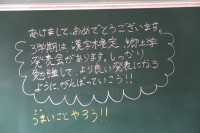 あけまして、おめでとうございます。
3学期は、漢字検定、
発表会があります。しっかり
勉強して、より良い発表になる
ように、がんばっていこう!!
うまいことやろう!!